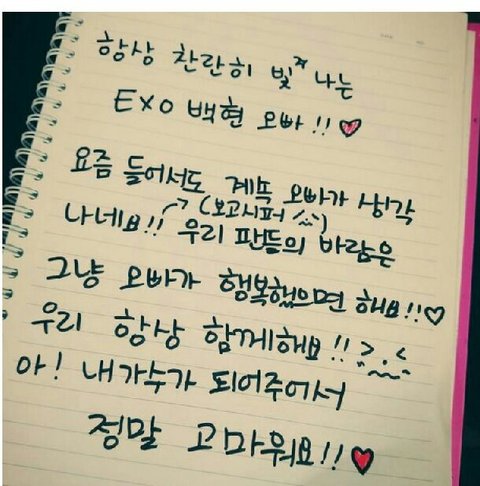 항상 찬란히 빛나는
EXO 백현 오빠!! ♥
요즘 들어서도 계쏙 오빠가 생각
나네요!! → (보고시퍼 ^^) 우리 팬들의 바람은
그냥 오빠가 행복했으면 해요!! ♡
우리 항상 함께해요!! >.<
아! 내가수가 되어주어서
정말 고마워요!! ♥